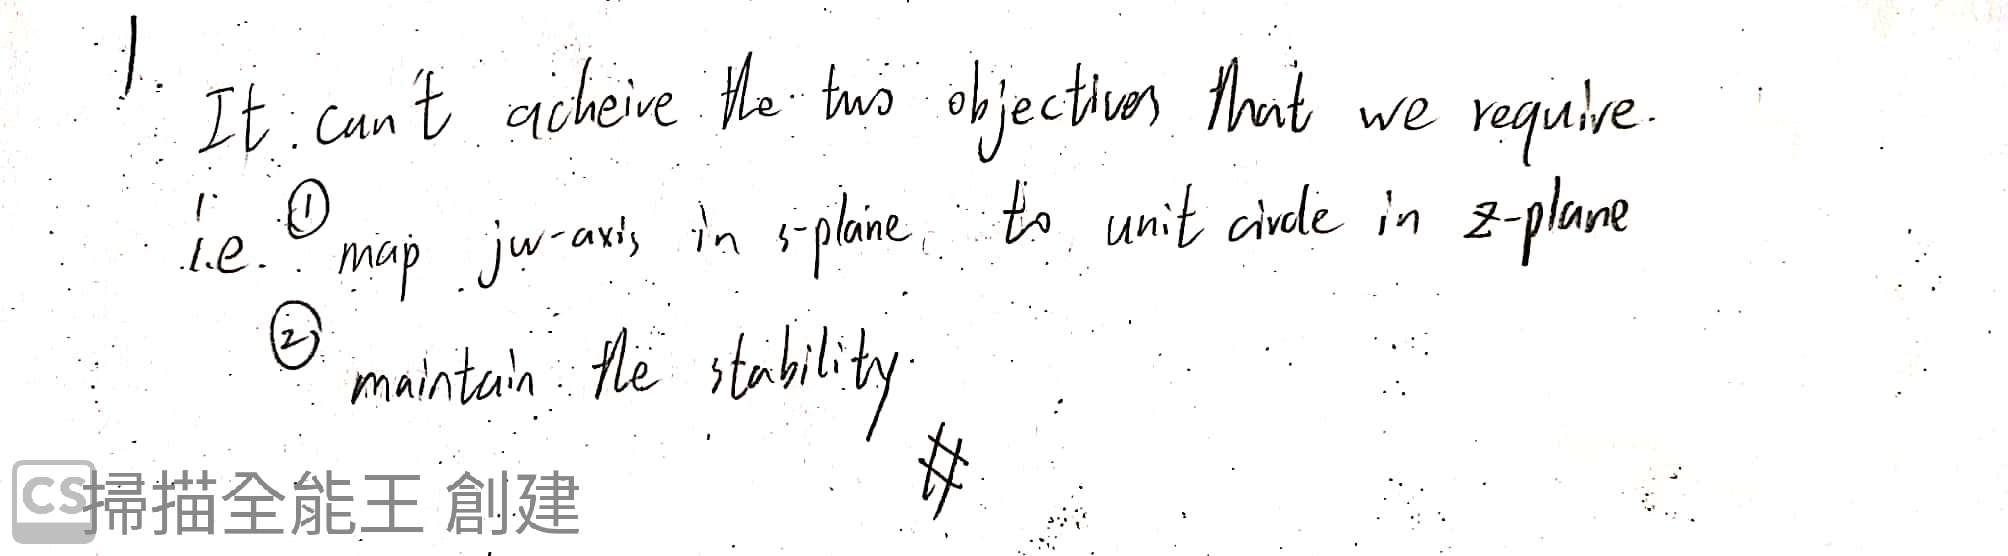 1.
It can't acheive the two objectives that we require.
i.e. ① map jw-axis in s-plane, to unit circle in z-plane
② maintain the stability.
#
CS掃描全能王 創建